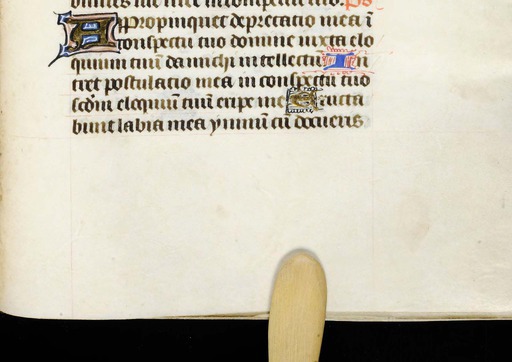 Ps
Appropinquet deprecatio mea ī
conspectu tuo domine iuxta elo
quium tuū da michi intellectū In
tret postulatio mea in conspectu tuo
scd̄m eloquium tuū eripe me Eructa
bunt labia mea ymnū cū docueris